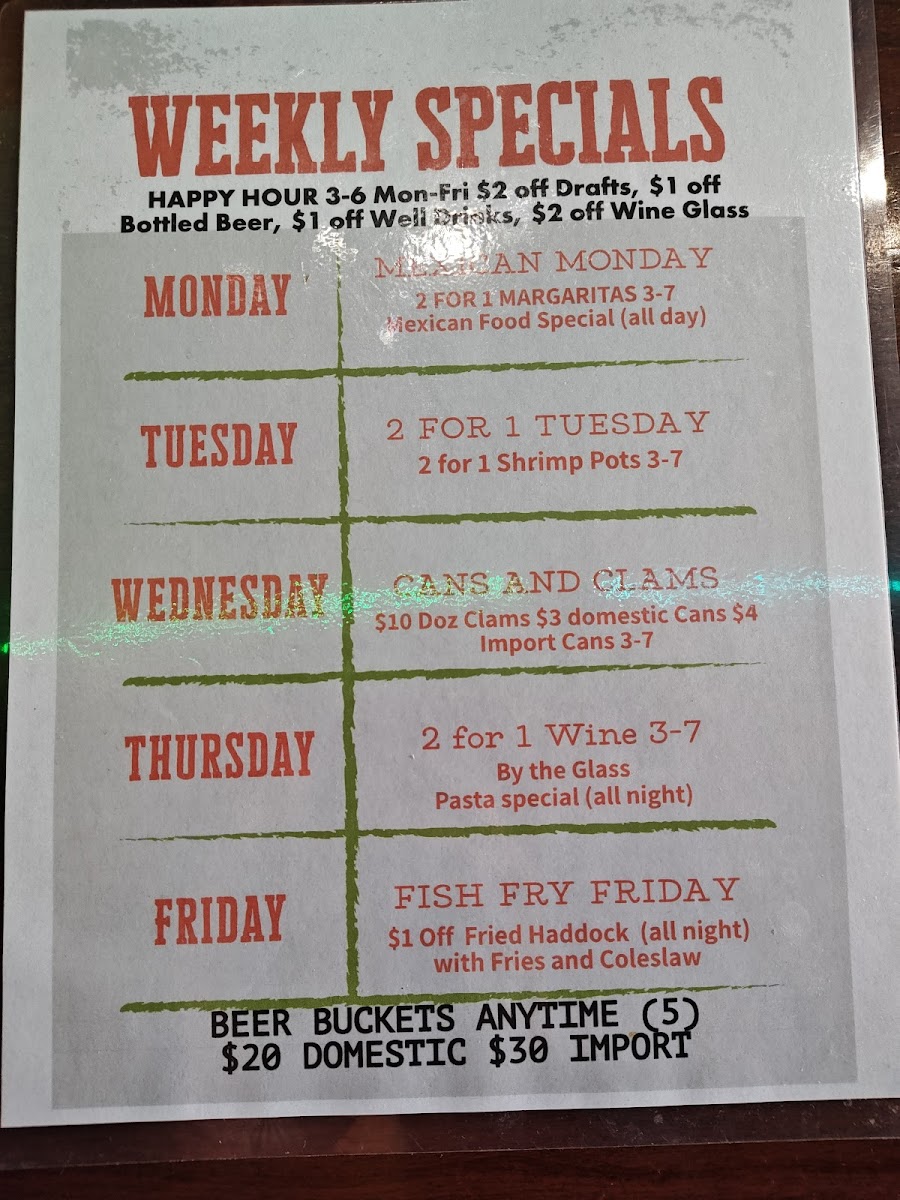 WEEKLY SPECIALS
HAPPY HOUR 3-6 Mon-Fri $2 off Drafts, $1 off
Bottled Beer, $1 off Well Drinks, $2 off Wine Glass
MONDAY
MEXICAN MONDAY
2 FOR 1 MARGARITAS 3-7
Mexican Food Special (all day)
TUESDAY
2 FOR 1 TUESDAY
2 for 1 Shrimp Pots 3-7
WEDNESDAY
CANS AND CLAMS
$10 Doz Clams $3 domestic Cans $4
Import Cans 3-7
THURSDAY
2 for 1 Wine 3-7
By the Glass
Pasta special (all night)
FRIDAY
FISH FRY FRIDAY
$1 Off Fried Haddock (all night)
with Fries and Coleslaw
BEER BUCKETS ANYTIME (5)
$20 DOMESTIC $30 IMPORT